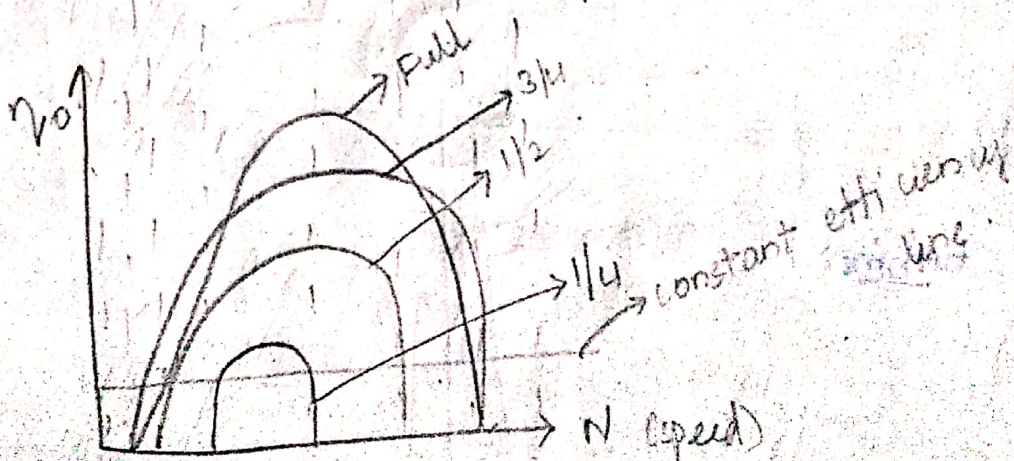 η₀
Full
3/4
1/2
1/4
constant efficiency
line.
N (speed)